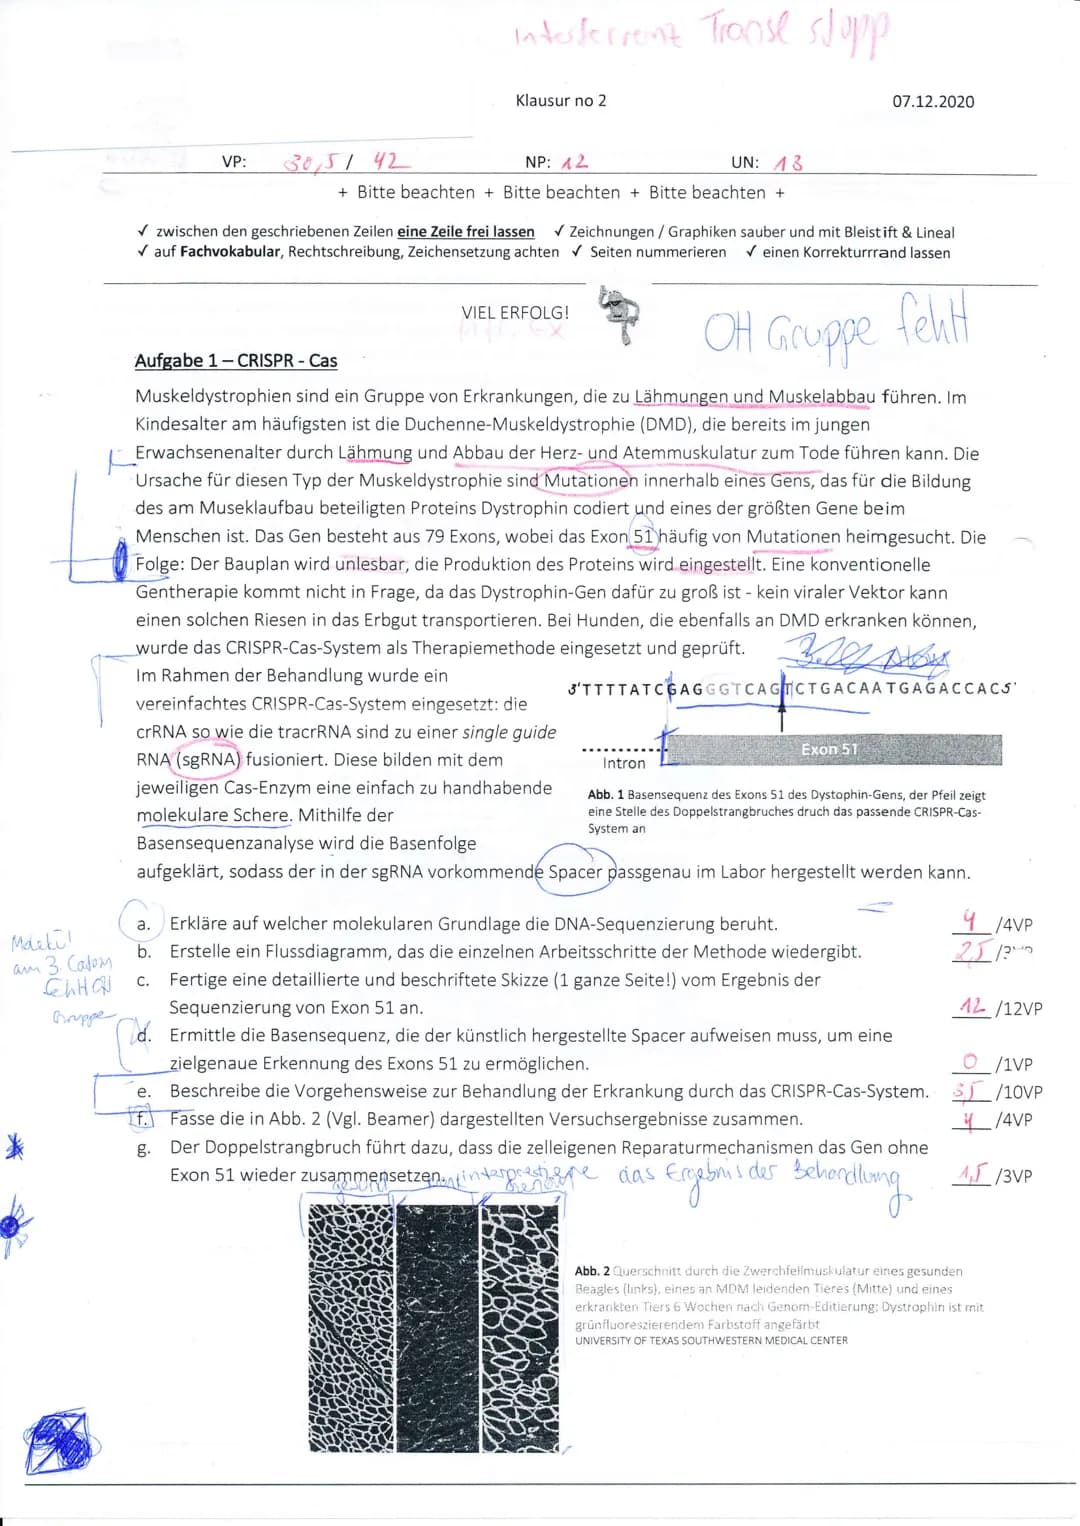 Interferrenz Transl stopp
Klausur no 2 07.12.2020
VP: 30,5 / 42 NP: 12 UN: 13
+ Bitte beachten + Bitte beachten + Bitte beachten +
✓ zwischen den geschriebenen Zeilen eine Zeile frei lassen ✓ Zeichnungen / Graphiken sauber und mit Bleistift & Lineal
✓ auf Fachvokabular, Rechtschreibung, Zeichensetzung achten ✓ Seiten nummerieren ✓ einen Korrekturrrand lassen
VIEL ERFOLG!
OH Gruppe fehlt
Aufgabe 1 – CRISPR - Cas
Muskeldystrophien sind ein Gruppe von Erkrankungen, die zu Lähmungen und Muskelabbau führen. Im
Kindesalter am häufigsten ist die Duchenne-Muskeldystrophie (DMD), die bereits im jungen
Erwachsenenalter durch Lähmung und Abbau der Herz- und Atemmuskulatur zum Tode führen kann. Die
Ursache für diesen Typ der Muskeldystrophie sind Mutationen innerhalb eines Gens, das für die Bildung
des am Museklaufbau beteiligten Proteins Dystrophin codiert und eines der größten Gene beim
Menschen ist. Das Gen besteht aus 79 Exons, wobei das Exon 51 häufig von Mutationen heimgesucht. Die
Folge: Der Bauplan wird unlesbar, die Produktion des Proteins wird eingestellt. Eine konventionelle
Gentherapie kommt nicht in Frage, da das Dystrophin-Gen dafür zu groß ist - kein viraler Vektor kann
einen solchen Riesen in das Erbgut transportieren. Bei Hunden, die ebenfalls an DMD erkranken können,
wurde das CRISPR-Cas-System als Therapiemethode eingesetzt und geprüft.
Im Rahmen der Behandlung wurde ein
vereinfachtes CRISPR-Cas-System eingesetzt: die
crRNA so wie die tracrRNA sind zu einer single guide
RNA (sgRNA) fusioniert. Diese bilden mit dem
jeweiligen Cas-Enzym eine einfach zu handhabende
molekulare Schere. Mithilfe der
Basensequenzanalyse wird die Basenfolge
aufgeklärt, sodass der in der sgRNA vorkommende Spacer passgenau im Labor hergestellt werden kann.
3'TTTTATCGAGGGTCAGTCTGACAATGAGACCAC5'
Intron
Exon 51
Abb. 1 Basensequenz des Exons 51 des Dystophin-Gens, der Pfeil zeigt
eine Stelle des Doppelstrangbruches druch das passende CRISPR-Cas-
System an
a. Erkläre auf welcher molekularen Grundlage die DNA-Sequenzierung beruht. 4 /4VP
b. Erstelle ein Flussdiagramm, das die einzelnen Arbeitsschritte der Methode wiedergibt. 2,5
c. Fertige eine detaillierte und beschriftete Skizze (1 ganze Seite!) vom Ergebnis der
Sequenzierung von Exon 51 an. 12 /12VP
d. Ermittle die Basensequenz, die der künstlich hergestellte Spacer aufweisen muss, um eine
zielgenaue Erkennung des Exons 51 zu ermöglichen. 0 /1VP
e. Beschreibe die Vorgehensweise zur Behandlung der Erkrankung durch das CRISPR-Cas-System. 3,5 /10VP
f. Fasse die in Abb. 2 (Vgl. Beamer) dargestellten Versuchsergebnisse zusammen. 4 /4VP
g. Der Doppelstrangbruch führt dazu, dass die zelleigenen Reparaturmechanismen das Gen ohne
Exon 51 wieder zusammensetzen. interpretiere das Ergebnis der Behandlung 1,5 /3VP
am 3.
fehlt OH
Gruppe
gesund
Abb. 2 Querschnitt durch die Zwerchfellmuskulatur eines gesunden
Beagles (links), eines an MDM leidenden Tieres (Mitte) und eines
erkrankten Tiers 6 Wochen nach Genom-Editierung; Dystrophin ist mit
grünfluoreszierendem Farbstoff angefärbt
UNIVERSITY OF TEXAS SOUTHWESTERN MEDICAL CENTER